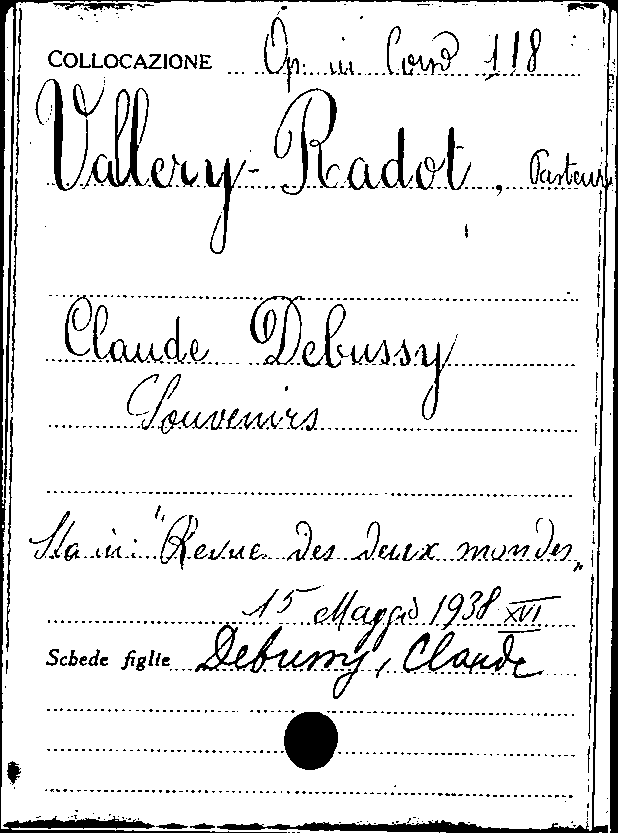 COLLOCAZIONE Op. in Cons 118
Vallery-Radot, Pasteur
Claude Debussy
Souvenirs
Sta in: "Revue des deux mondes„
15 Maggio 1938 XVI
Schede figlie Debussy, Claude